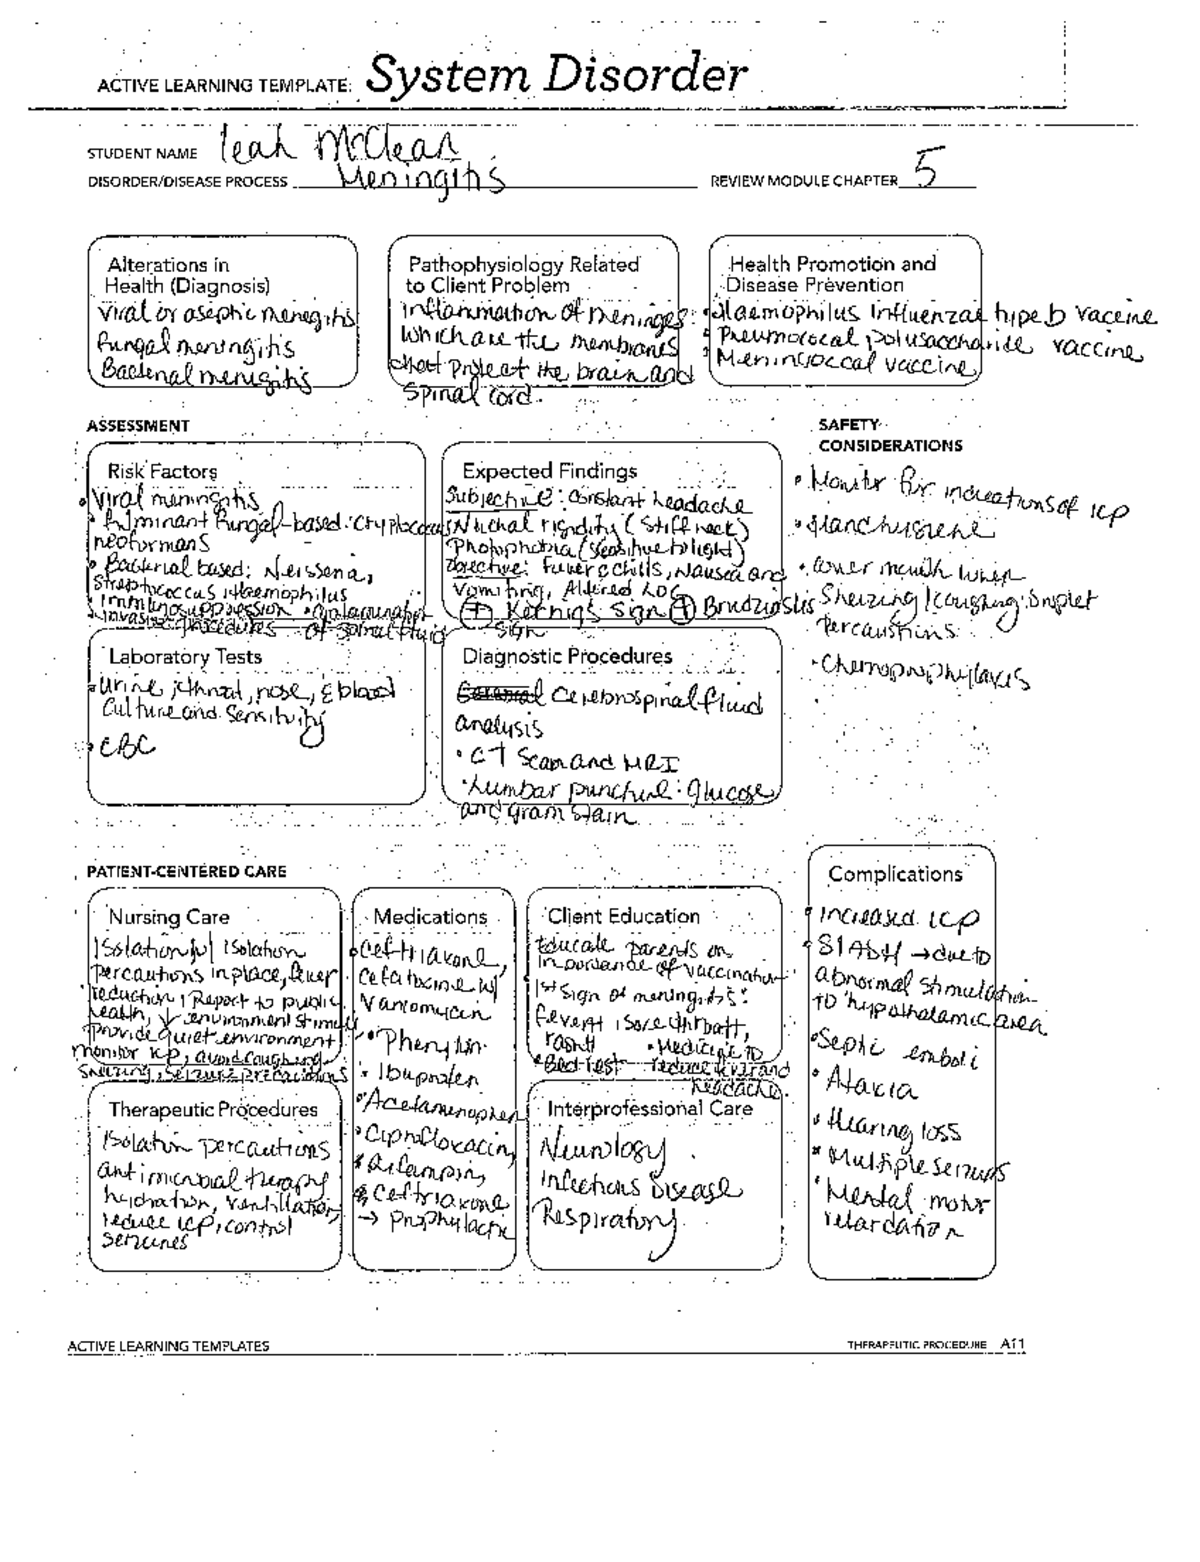 ACTIVE LEARNING TEMPLATE: System Disorder
STUDENT NAME Leah McClean
DISORDER/DISEASE PROCESS Meningitis
REVIEW MODULE CHAPTER 5
Alterations in
Health (Diagnosis)
Viral or aseptic menegitis
Fungal meningitis
Bacterial menigitis
Pathophysiology Related
to Client Problem
Inflammation of meninges:
which are the membranes
that protect the brain and
Spinal cord.
Health Promotion and
Disease Prevention
• Haemophilus Influenzae type b vaccine
• Pneumococal polusaccharide vaccine
• Meningoccal vaccine
ASSESSMENT
Risk Factors
• Viral meningitis
• Fulminant fungal-based: Cryptococcus
neoformans
• Bacterial based: Neisseria,
Streptococcus, Haemophilus
Immunosuppression • contamination
• Invasive procedures of spinal fluid
Expected Findings
Subjective: Constant headache
Nuchal rigidity (stiff neck)
Photophobia (sensitive to light)
Objective: Fever & chills, Nausea and
vomiting, Altered LOC
(+) Kernig's Sign (+) Brudzinskis
sign
SAFETY
CONSIDERATIONS
• Monitor for indications of ICP
• Hand hygiene
• cover mouth when
Sneizing/coughing: Droplet
Percaustions
• Chemoprophylaxis
Laboratory Tests
• Urine, throat, nose, & blood
Culture and Sensitivity
• CBC
Diagnostic Procedures
Cerebrospinal fluid
analysis
• CT Scan and MRI
• Lumbar puncture: glucose
and gram stain
PATIENT-CENTERED CARE
Nursing Care
Isolation w/ isolation
percautions in place, fever
reduction, Report to public
health, ↓ environment stimuli
Provide quiet environment
monitor ICP, avoid coughing
Sneizing, seizure precautions
Medications
• Ceftriaxone,
Cefatoxine w/
Vancomycin
• Phenytoin
• Ibuprofen
• Acetaminophen
• Ciprofloxacin,
• Rifampin,
• Ceftriaxone
→ Prophylactic
Client Education
Educate parents on
importance of vaccination
1st sign of meningitis:
fever, sore throat,
rash • Medicine to
• Bed rest reduce fever and
headache.
Complications
• Increased ICP
• SIADH → due to
abnormal stimulation
to hypothalamic area
• Septic emboli
• Ataxia
• Hearing loss
• Multiple seizures
• Mental motor
retardation
Therapeutic Procedures
Isolation percautions
antimicrobial therapy
hydration, ventillation,
reduce ICP, control
seizures
Interprofessional Care
Neurology
Infectious Disease
Respiratory
ACTIVE LEARNING TEMPLATES
THERAPEUTIC PROCEDURE A11